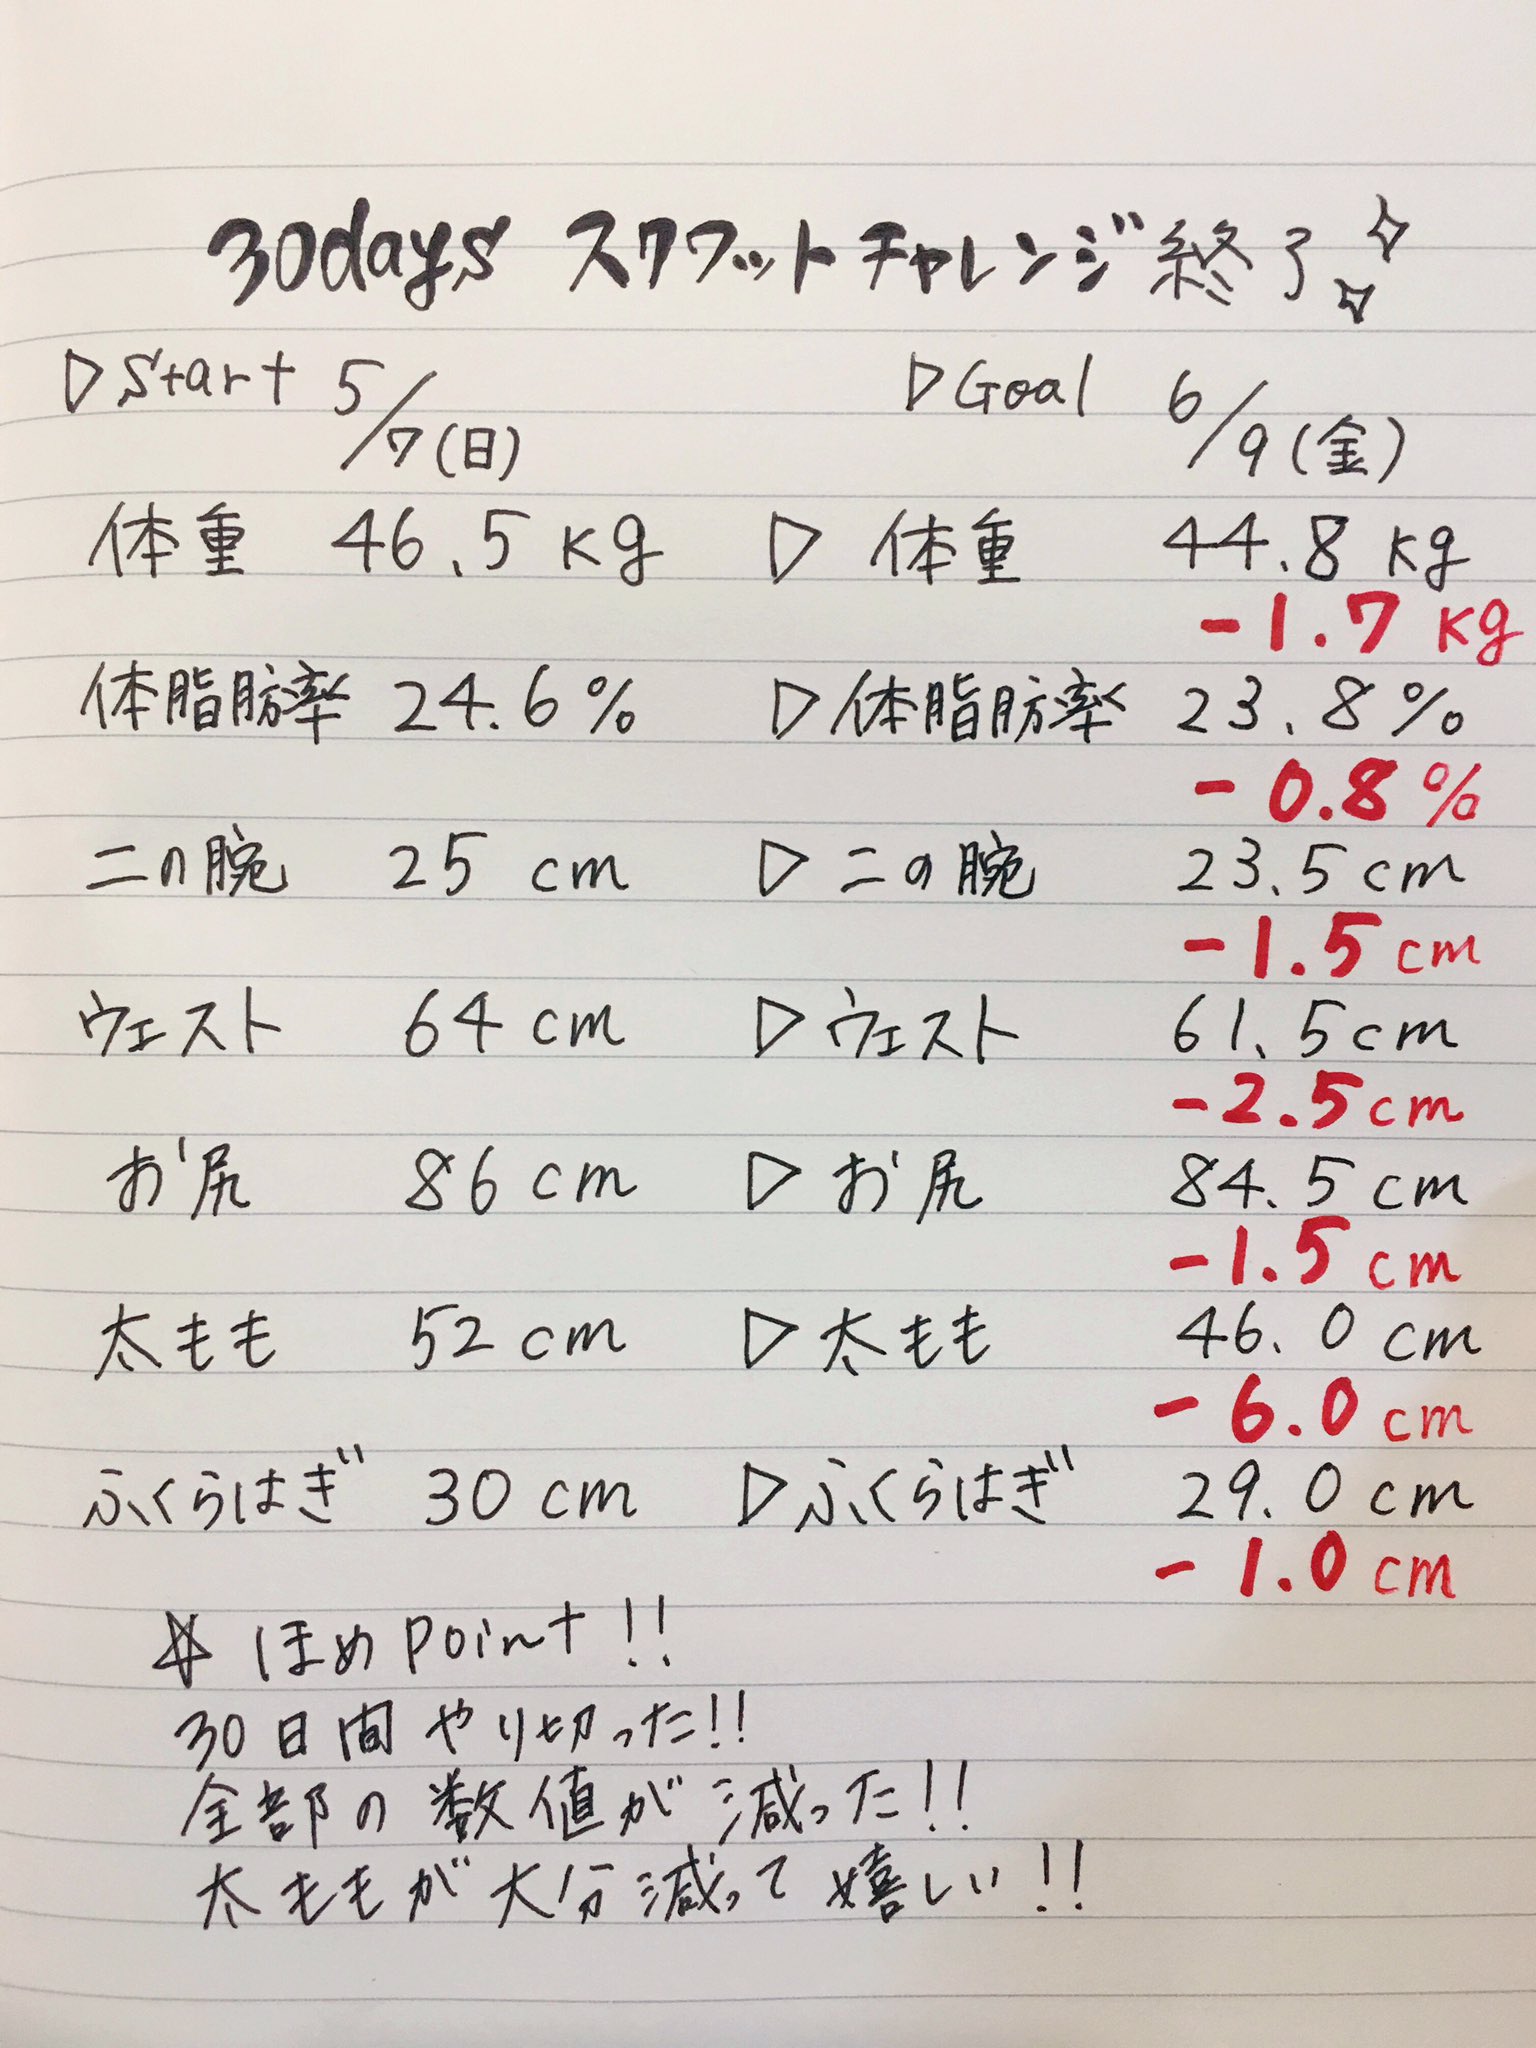 30days スクワットチャレンジ終了
▷Start 5/7(日) ▷Goal 6/9(金)
体重 46.5kg ▷ 体重 44.8kg
-1.7kg
体脂肪率 24.6% ▷体脂肪率 23.8%
-0.8%
二の腕 25cm ▷二の腕 23.5cm
-1.5cm
ウエスト 64cm ▷ウエスト 61.5cm
-2.5cm
お尻 86cm ▷お尻 84.5cm
-1.5cm
太もも 52cm ▷太もも 46.0cm
-6.0cm
ふくらはぎ 30cm ▷ふくらはぎ 29.0cm
-1.0cm
☆ほめPoint!!
30日間やり切った!!
全部の数値が減った!!
太ももが大分減って嬉しい!!